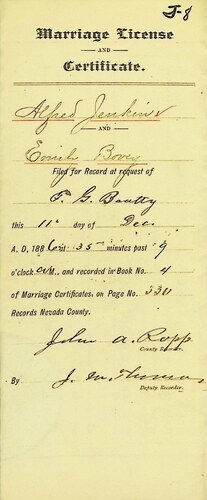 J-8
Marriage License
AND
Certificate.
Alfred Jenkins
AND
Emily Bovey
Filed for Record at request of
F. G. Beatty
this 11" day of Dec.
A. D. 1886 at 35 minutes past 9
o'clock A.M., and recorded in Book No. 4
of Marriage Certificates, on Page No. 330
Records Nevada County.
John A. Rapp
County Recorder.
By J. M. Thomas
Deputy Recorder.